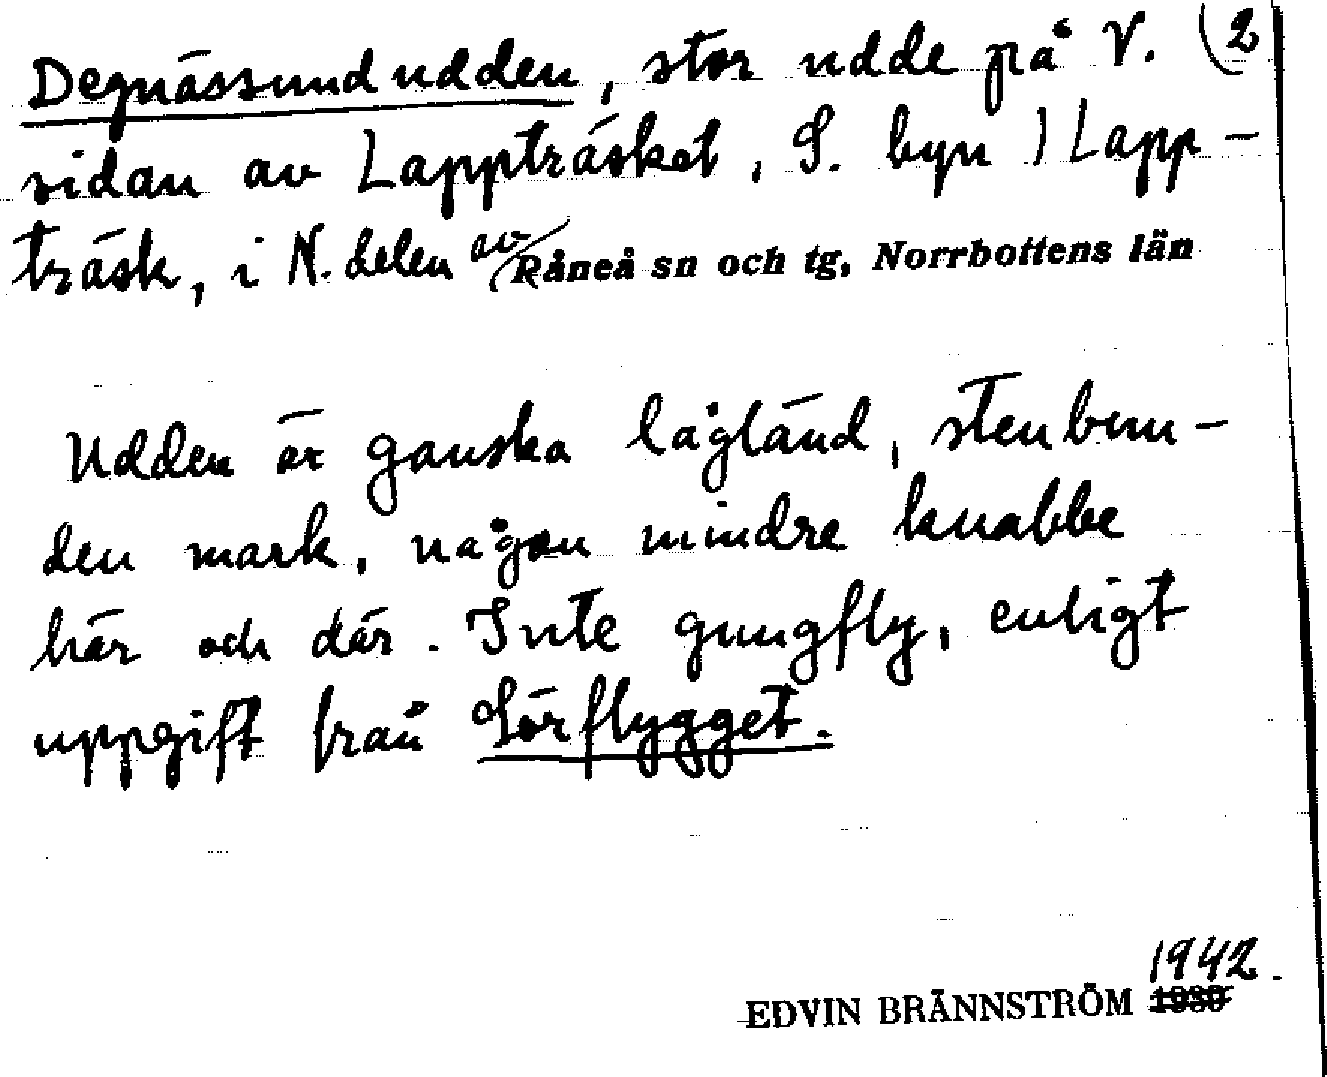 Degnässundudden, stor udde på V. (2
sidan av Lappträsket, S. byn ) Lapp-
träsk, i N. delen av Råneå sn och tg, Norrbottens län
Udden är ganska lågländ, stenbun-
den mark, någon mindre knabbe
här och där. Inte gungfly, enligt
uppgift från Sörflygget.
1942.
EDVIN BRÄNNSTRÖM 1930